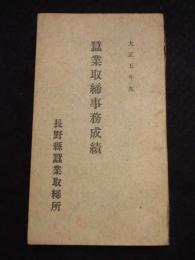 大正五年度
蠶業取締事務成績
長野縣蠶業取締所